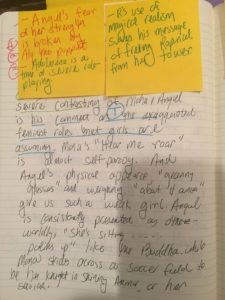 - Angel's fear
of her strength
is broken by
Ali the
Adolescence is a
time of severe role
playing.
- R's use of
magical realism
his message
of feeling
from
severe contrasting of Mona/Angel
is his comment on the exaggerated
feminist roles (that girls are
assuming. Mona's "Hear me roar"
is almost self-parody. And
Angel's physical appearance "granny
glasses" and weighing "about
give us such a weak girl. Angel
is consistently presented as other-
worldly, "She's sitting
like Buddha, while
Mona strides across a soccer field to
be his knight in shining Armor or her